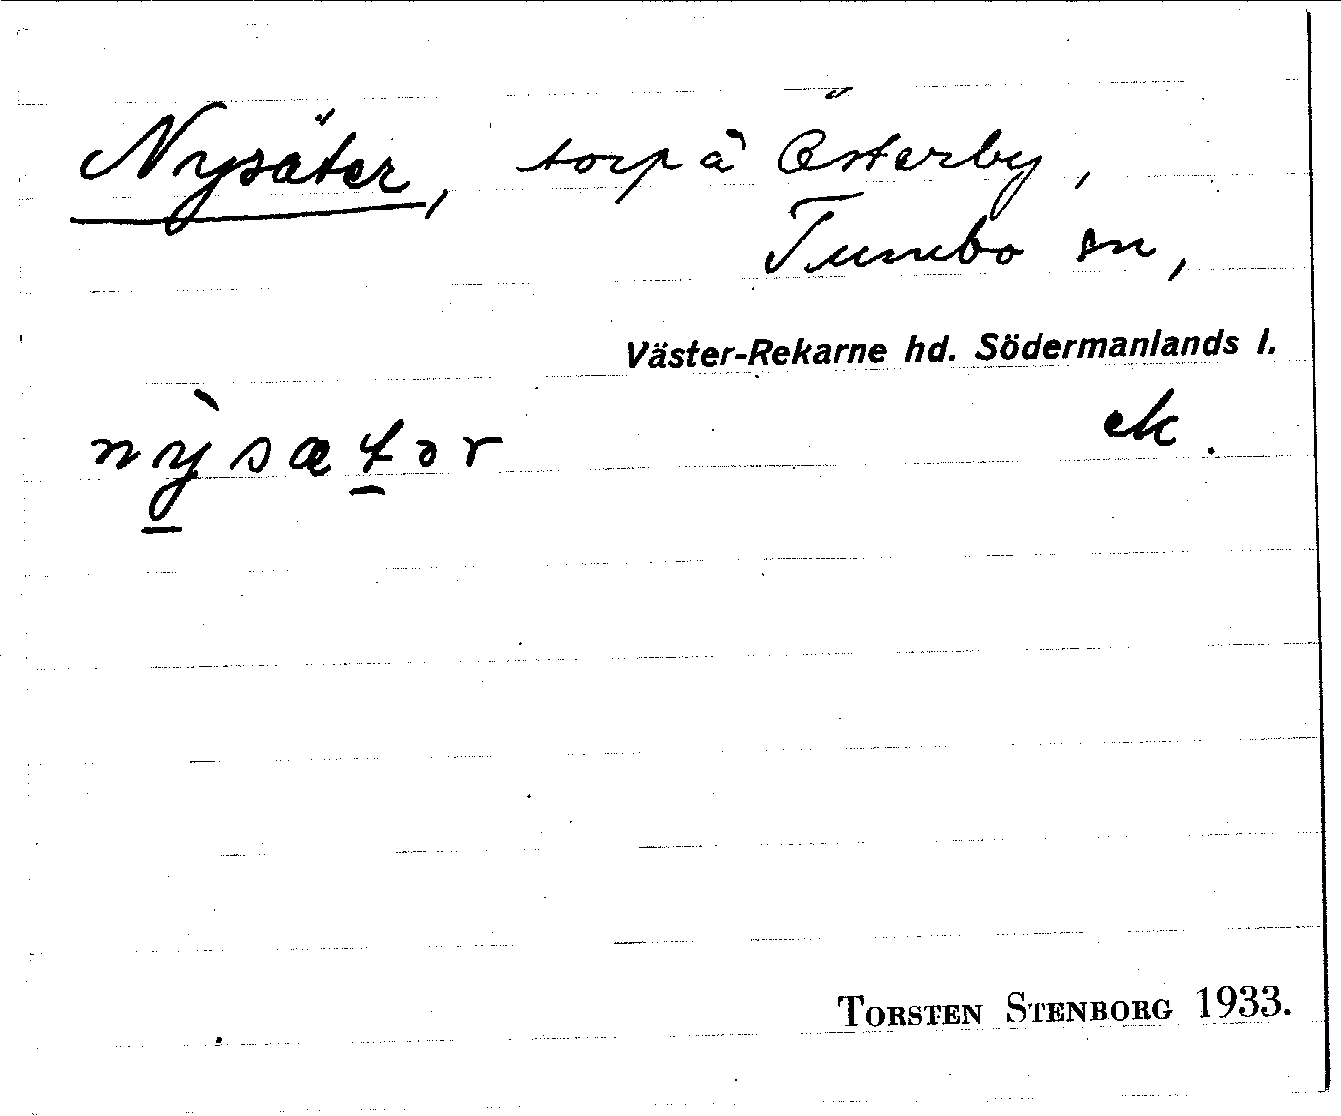 Nysäter, torp å Österby,
Tumbo sn,
Väster-Rekarne hd. Södermanlands l.
ek.
nỳsætər
TORSTEN STENBORG 1933.